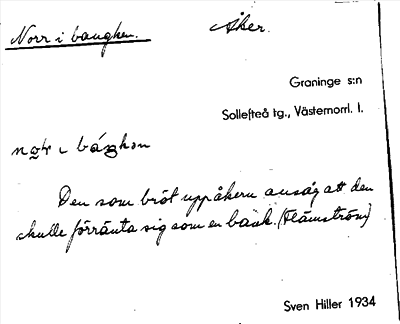 Norr i baugken. Åker.
Graninge s:n
Sollefteå tg., Västernorrl. l.
Den som bröt uppåkern ansåg att den
skulle förränta sig som en bank. (Flämström)
Sven Hiller 1934